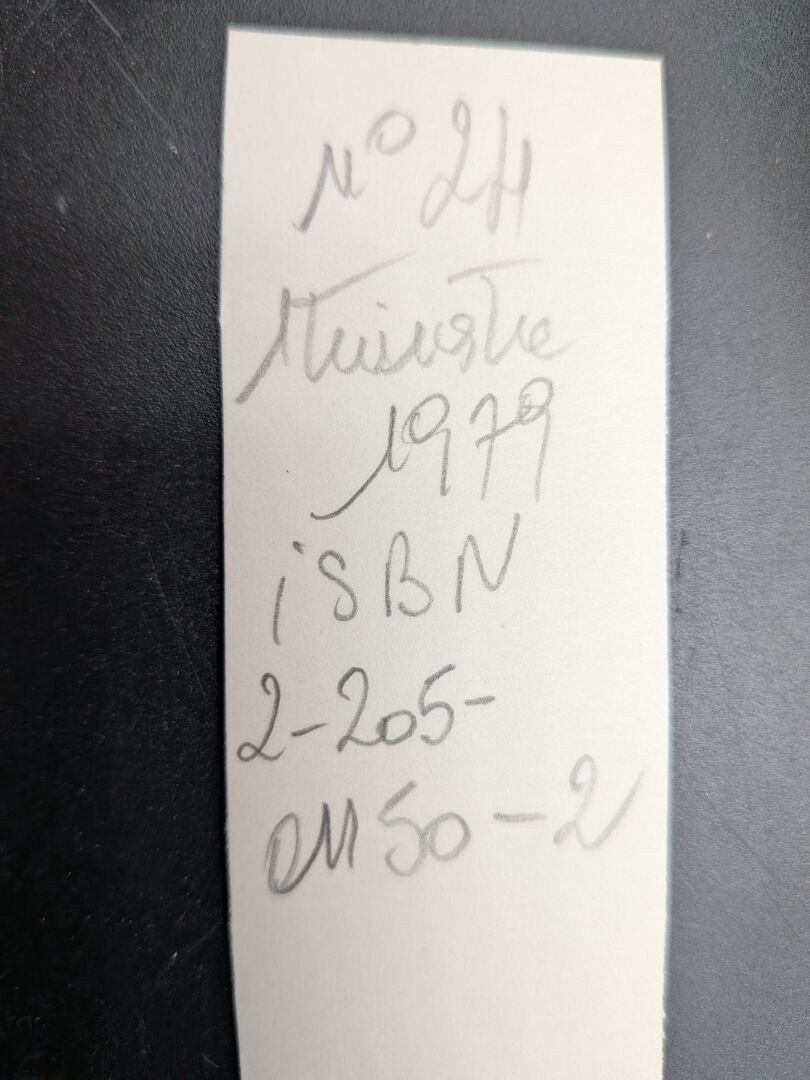 N° 24
1979
iSBN
2-205-
01150-2